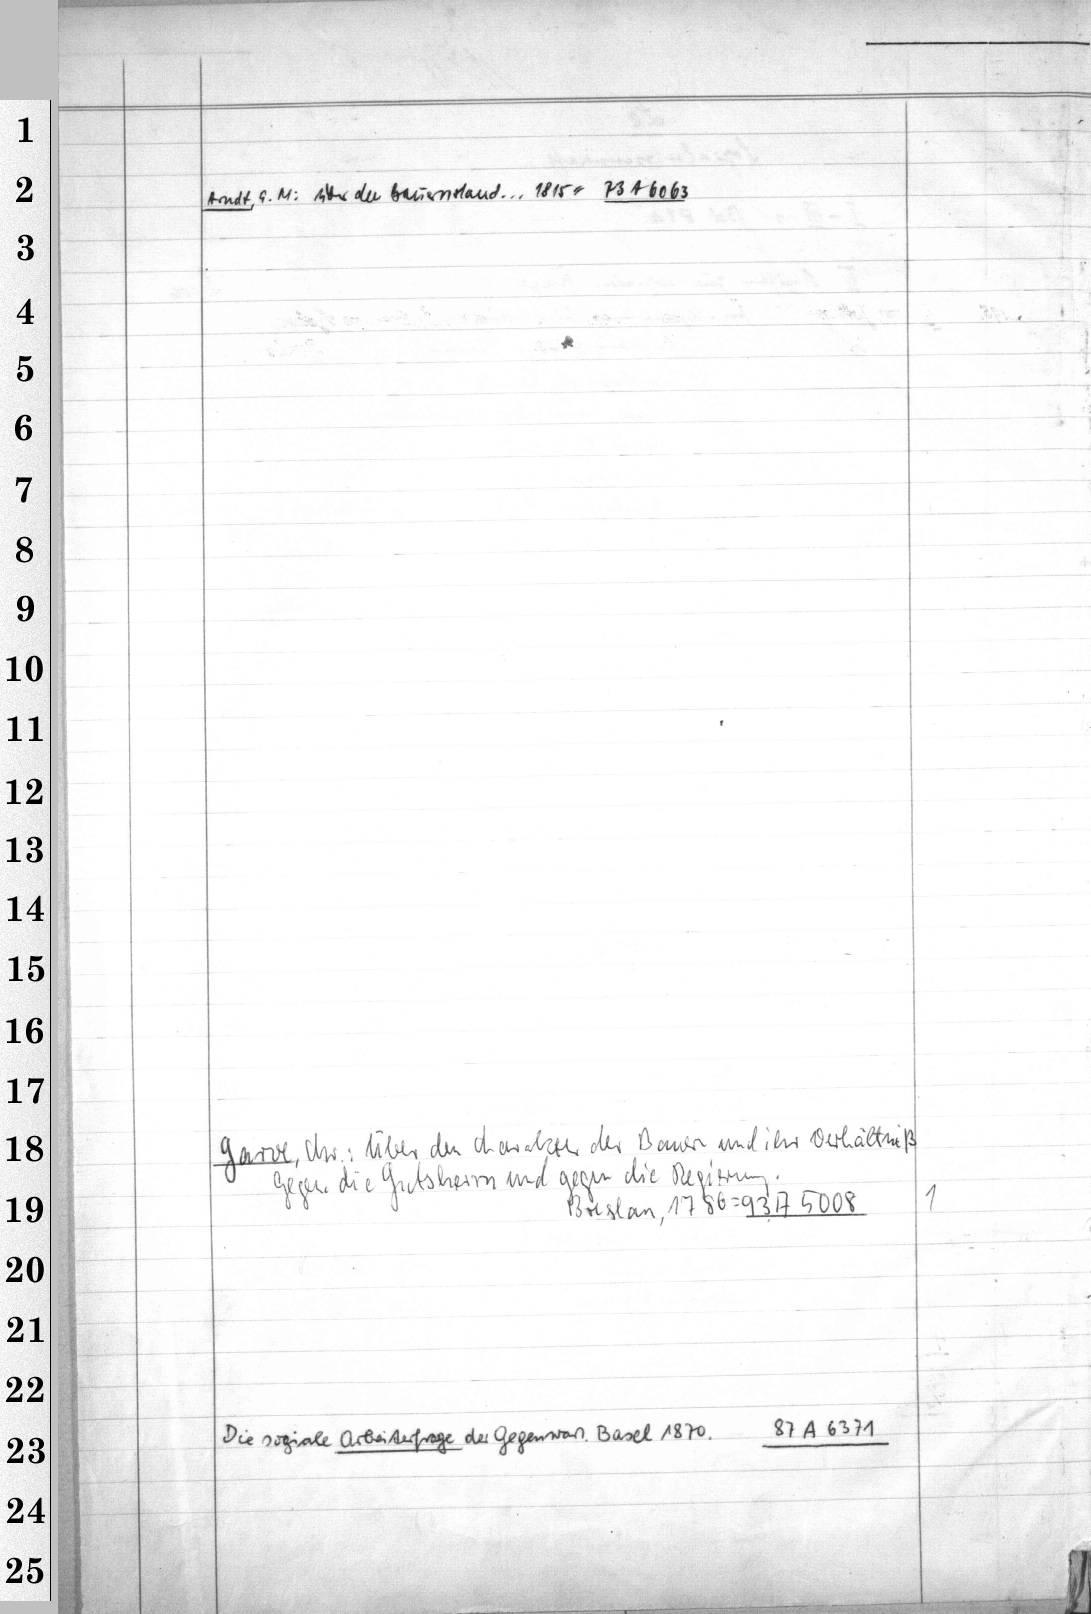 1
2
Arndt, E. M.: Über den Bauernstand... 1815 = 73 A 6063
3
4
5
6
7
8
9
10
11
12
13
14
15
16
17
18
Garve, Chr.: Über den Charakter der Bauern und ihr Verhältniß
gegen die Gutsherrn und gegen die Regierung.
19
Breslau, 1786 = 93 A 5008
1
20
21
22
23
Die soziale Arbeiterfrage der Gegenwart. Basel 1870. 87 A 6371
24
25